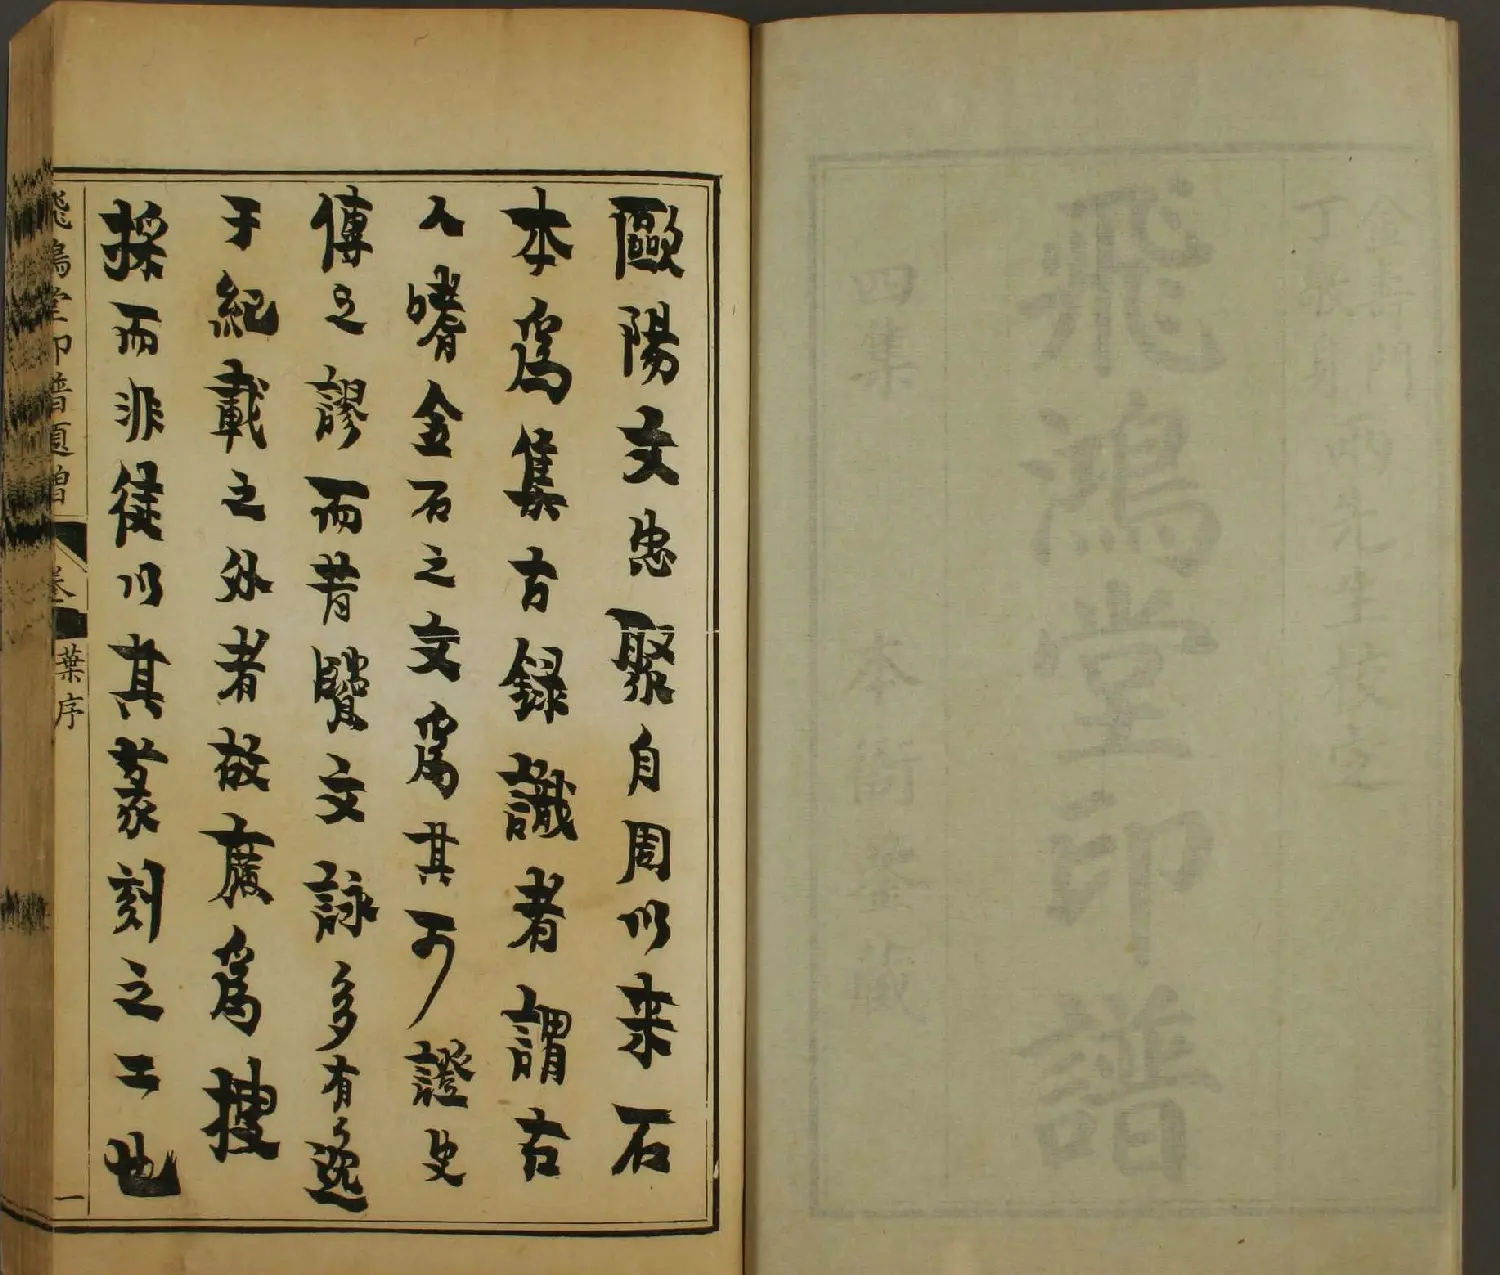 金壽門
丁敬身
兩先生校定
飛鴻堂印譜
四集 本衙螯藏
歐陽文忠聚自周以来石
本爲集古録識者謂古
人嗜金石之文爲其可證史
傳之謬而昔賢文詠多有逸
于紀載之外者故廣爲搜
採而非徒以其篆刻之工也
飛鴻堂印譜題贈 卷 葉序 一